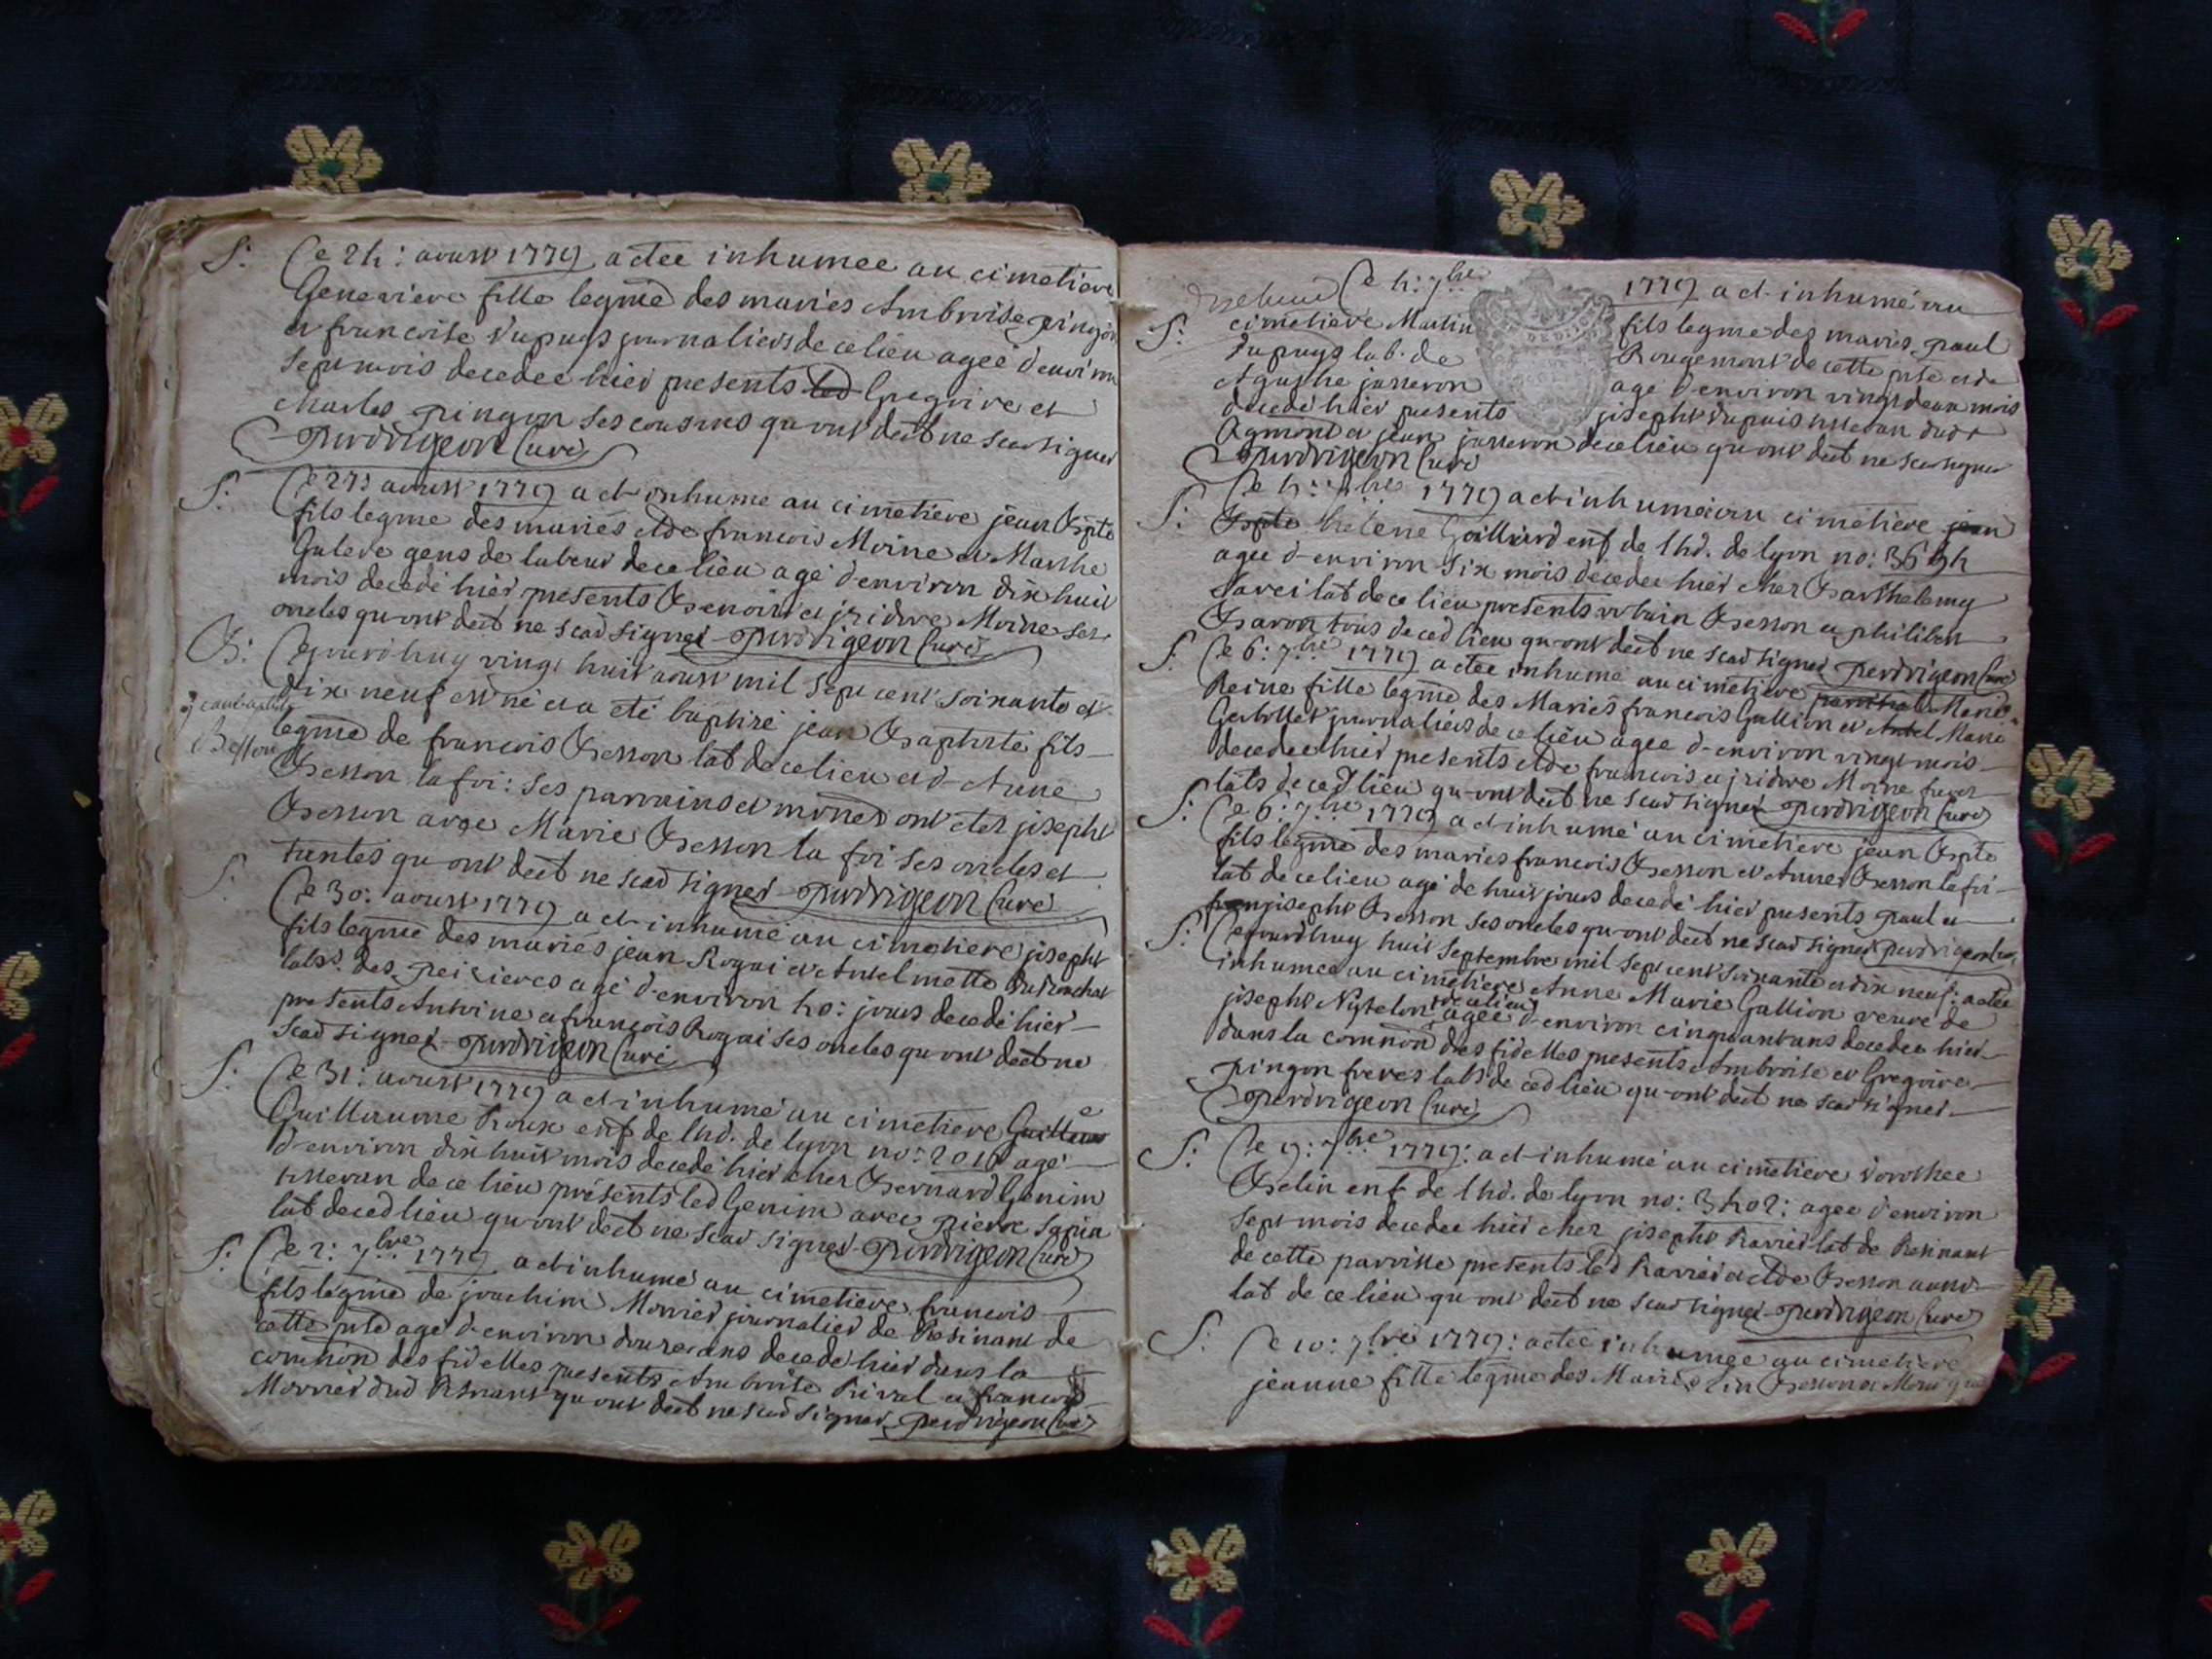 S: Ce 24: aoust 1779 a etee inhumee au cimetiere
Genevieve fille legme des mariés Ambroise pingon
et francoise Dupuys journaliers de ce lieu agee d'environ
sept mois decedee hier presents led Gregoire et
charles pingon ses cousins qu-ont decl ne scav signer
perdrigeon Curé
S: Ce 27: aoust 1779 a et inhume au cimetiere jean Bpte
fils legme des mariés de francois Moine et Marthe
gens de labeur de ce lieu agé d'environ dix huit
mois decedé hier presents Benoit et jsidore Moine ses
oncles qu-ont decl ne scav signer perdrigeon Curé
B: Cejourdhuy vingt huit aoust mil sept cent soixante et
jean baptiste
dix neuf est né et a eté baptisé jean Baptiste fils
Besson
legme de francois Besson lab de ce lieu et d'Anne
Besson la foi: ses parrains et ont etes joseph
Besson avec Marie Besson la foi ses oncles et
tantes qu-ont decl ne scav signer perdrigeon Curé
S: Ce 30: aoust 1779 a et inhumé au cimetiere joseph
fils legme des mariés jean Rogai et Antelmette
labs. des agé d'environ 40: jours decedé hier
presents Antoine et françois Rogai ses oncles qu-ont decl ne
scav signer perdrigeon Curé
S: Ce 31: aoust 1779 a et inhumé au cimetiere
Guillaume Roux enf de lhd. de lyon no: 2016 agé
d'environ dix huit mois decedé hier chez Bernard Genin
tisseran de ce lieu présents led Genin avec pierre
lab de ced lieu qu-ont decl ne scav signer perdrigeon Curé
S: Ce 2: 7bre 1779 a et inhumé au cimetiere francois
fils legme de joachim Morrier journalier de Resinant de
cette psse agé d'environ douze ans decedé hier dans la
comnion des fidelles presents Ambroise Rival et francois
Morrier dud Resinant qu-ont decl ne scav signer perdrigeon Curé
Ce 4: 7bre 1779 a et inhumé au
S: cimetiere Martin fils legme des mariés paul
Dupuys lab. de Rougemont de cette psse et de
Agathe jasseron agé d'environ vingt deux mois
decedé hier presents joseph Dupuis tisseran dud
Agmont et jean jasseron de ce lieu qu-ont decl ne scav signer
perdrigeon Curé
S: Ce 4: 7bre 1779 a et inhumée au cimetiere jean
Bpte helene Gailliard enf de lhd. de lyon no: 3694
agee d'environ six mois decedee hier chez Barthelemy
lab de ce lieu presents urbain Besson et philibert
Baron tous de ced lieu qu-ont decl ne scav signer perdrigeon Curé
S: Ce 6: 7bre 1779 a etee inhume au cimetiere Marie
Reine fille legme des Mariés francois Gallion et Marie
journaliers de ce lieu agee d'environ vingt mois
decedee hier presents de francois et jsidore Moine freres
labs de ced lieu qu-ont decl ne scav signer perdrigeon Curé
S: Ce 6: 7bre 1779 a et inhumé au cimetiere jean Bpte
fils legme des mariés francois Besson et Anne Besson la foi
lab de ce lieu agé de huit jours decedé hier presents paul et
joseph Besson ses oncles qu-ont decl ne scav signer perdrigeon Curé
S: Cejourdhuy huit septembre mil sept cent soixante et dix neuf: a etee
inhumee au cimetiere Anne Marie Gallion veuve de
joseph de ce lieu agee d'environ cinquant ans decedee hier
dans la comnion des fidelles presents Ambroise et Gregoire
pingon freres labs de ced lieu qu-ont decl ne scav signer
perdrigeon Curé
S: Ce 9: 7bre 1779: a et inhumé au cimetiere Dorothee
Belin enf de lhd. de lyon no: 3402: agee d'environ
sept mois decedee hier chez joseph Ravier lab de Resinant
de cette parroisse presents led Ravier et de Besson
lab de ce lieu qu-ont decl ne scav signer perdrigeon Curé
S: Ce 10: 7bre 1779: a etee inhumee au cimetiere
jeanne fille legme des Mariés Besson et